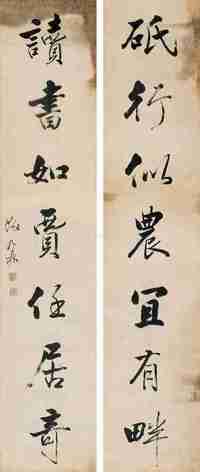 砥行似農宜有畔
讀書如賈任居奇